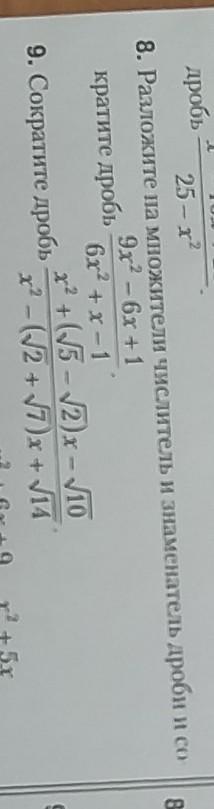 дробь \frac{}{25 - x^2}.
8. Разложите на множители числитель и знаменатель дроби и со
кратите дробь \frac{9x^2 - 6x + 1}{6x^2 + x - 1}.
9. Сократите дробь \frac{x^2 + (\sqrt{5} - \sqrt{2})x - \sqrt{10}}{x^2 - (\sqrt{2} + \sqrt{7})x + \sqrt{14}}.
x^2 + 5x
8